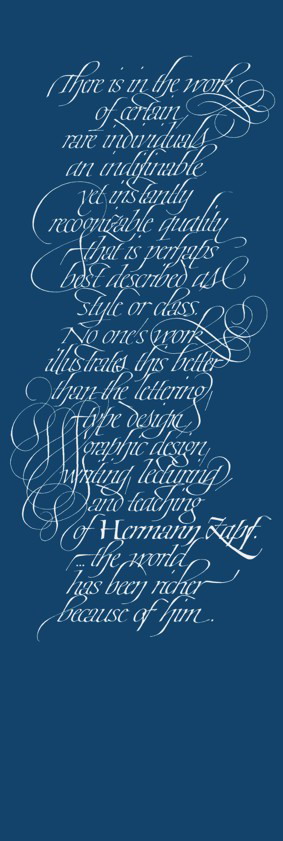 There is in the work
of certain
rare individuals
an indefinable
yet instantly
recognizable quality
that is perhaps
best described as
style or class.
No one's work
illustrates this better
than the lettering,
type design,
graphic design,
writing, lecturing,
and teaching
of Hermann Zapf.
... the world
has been richer
because of him.